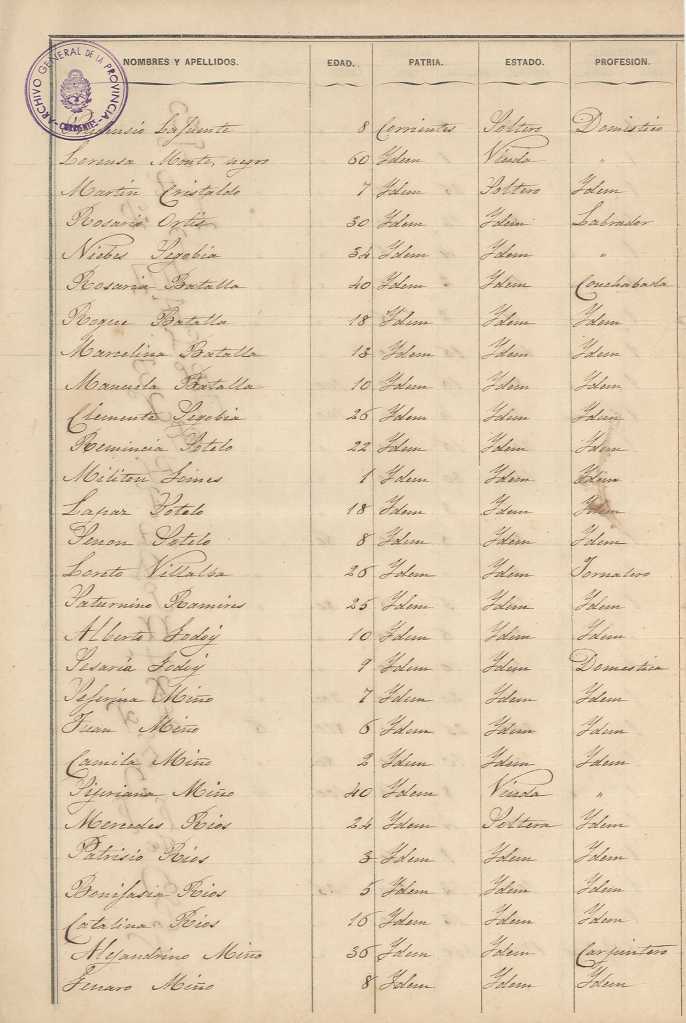 ARCHIVO GENERAL DE LA PROVINCIA
CORRIENTES
NOMBRES Y APELLIDOS. EDAD. PATRIA. ESTADO. PROFESION.
Lafuente 8 Corrientes Soltero Domestico
Lorensa Monte, negro 60 Ydem Viuda "
Martin Cristaldo 7 Ydem Soltero Ydem
Rosario Ortis 30 Ydem Ydem Labrador
Niebes Segobia 34 Ydem Ydem "
Rosaria Batalla 40 Ydem Ydem Conchabada
Roque Batalla 18 Ydem Ydem Ydem
Marcelina Batalla 13 Ydem Ydem Ydem
Manuela Batalla 10 Ydem Ydem Ydem
Clemente Segobia 26 Ydem Ydem Ydem
Remincia Sotelo 22 Ydem Ydem Ydem
Militon 1 Ydem Ydem Ydem
Lapaz Sotelo 18 Ydem Ydem Ydem
Senon Sotelo 8 Ydem Ydem Ydem
Loreto Villalba 26 Ydem Ydem Jornalero
Paturnino Ramires 25 Ydem Ydem Ydem
Alberto Godoy 10 Ydem Ydem Ydem
Sesaria Godoy 9 Ydem Ydem Domestica
Seferina Miño 7 Ydem Ydem Ydem
Juan Miño 6 Ydem Ydem Ydem
Camila Miño 2 Ydem Ydem Ydem
Sipriana Miño 40 Ydem Veuda "
Mercedes Rios 24 Ydem Soltera Ydem
Patrisio Rios 3 Ydem Ydem Ydem
Bonifasia Rios 5 Ydem Ydem Ydem
Catalina Rios 16 Ydem Ydem Ydem
Alejandrino Miño 36 Ydem Ydem Carpintero
Jenaro Miño 8 Ydem Ydem Ydem